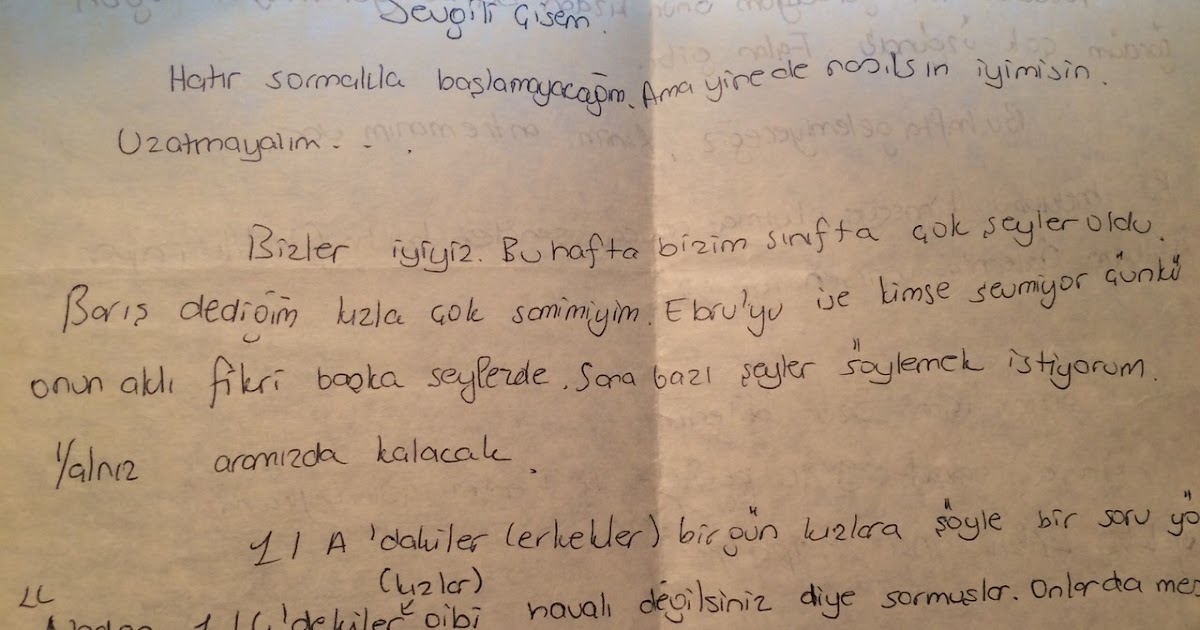 Sevgili Çisem.
Hatır sormakla başlamayacağım. Ama yinede nasılsın iyimisin.
Uzatmayalım. . .
Bizler iyiyiz. Bu hafta bizim sınıfta çok şeyler oldu.
Barış dediğim kızla çok samimiyim. Ebru'yu ise kimse sevmiyor çünkü
onun aklı fikri başka şeylerde. Sana bazı şeyler söylemek istiyorum.
Yalnız aramızda kalacak.
1 / A 'dakiler (erkekler) bir gün kızlara şöyle bir soru yö
(kızlar)
" 1 / C 'dekiler gibi havalı değilsiniz diye sormuşlar. Onlarda